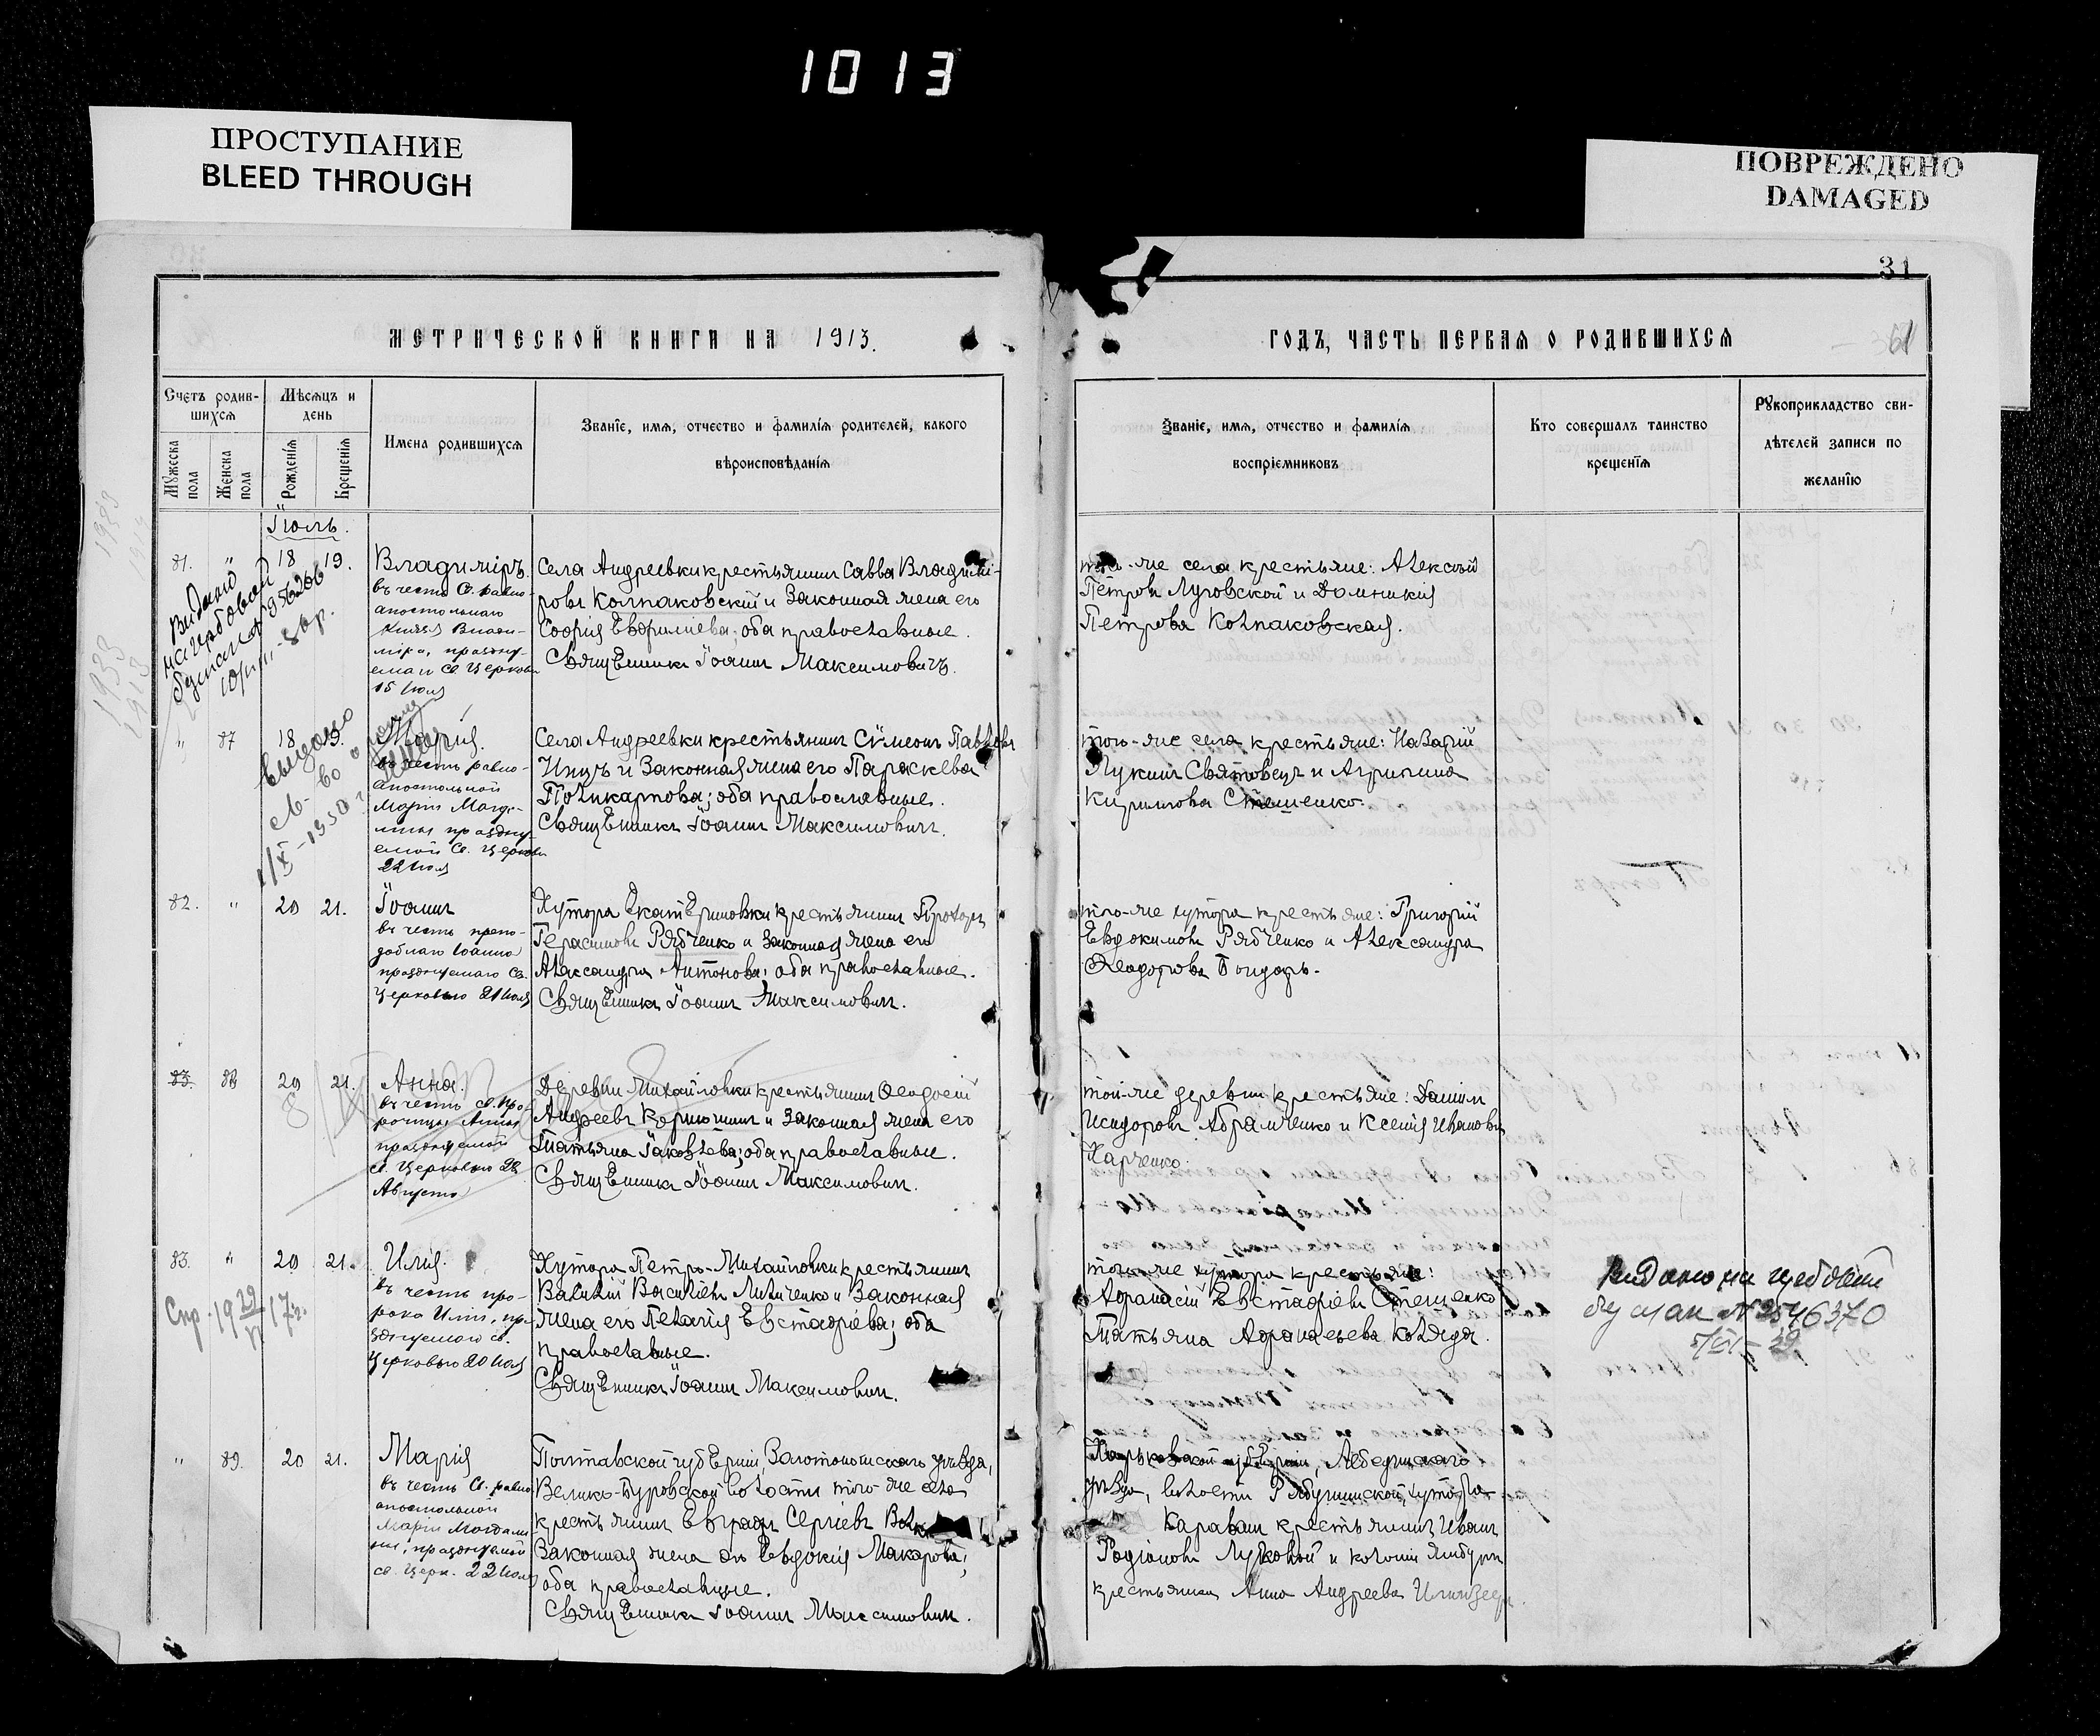 1013
ПРОСТУПАНИЕ
BLEED THROUGH
ПОВРЕЖДЕНО
DAMAGED
31
61
МЕТРИЧЕСКОЙ КНИГИ НА 1913.
ГОДЪ, ЧАСТЬ ПЕРВАЯ О РОДИВШИХСЯ
Счетъ родив-
шихся
Мужеска пола
Женска пола
Мѣсяцъ и
день
Рожденія
Крещенія
Имена родившихся
Званіе, имя, отчество и фамилія родителей, какого
вѣроисповѣданія
Званіе, имя, отчество и фамилія
воспріемниковъ
Кто совершалъ таинство
крещенія
Рукоприкладство сви-
дѣтелей записи по
желанію
Іюль.
81. " 18 19.
Владиміръ.
въ честь Св. равно-
апостольнаго
Князя Влади-
міра, праздну-
емаго Св. Церковью
15 Іюля
Села Андреевки крестьянинъ Савва Владимі-
ровъ Колпаковскій и законная жена его
Софія Евфиміева; оба православные.
Священникъ Іоаннъ Максимовичъ.
того-же села крестьяне: Алексѣй
Петровъ Луговской и Домникія
Петрова Колпаковская.
" 87 18 19.
Марія.
въ честь равно-
апостольной
Маріи Магда-
лины праздну-
емой Св. Церковью
22 Іюля
Села Андреевки крестьянинъ Сѵмеонъ Павловъ
и законная жена его Параскева
Поликарпова; оба православные.
Священникъ Іоаннъ Максимовичъ.
того-же села крестьяне: Назарій
Лукинъ Святовецъ и Агрипина
Кириллова Стешенко.
82. " 20 21.
Іоаннъ
въ честь препо-
добнаго Іоанна
празднуемаго Св.
Церковью 21 Іюля
Хутора Екатериновки крестьянинъ Прохоръ
Герасимовъ Рябченко и законная жена его
Александра Антонова; оба православные.
Священникъ Іоаннъ Максимовичъ.
того-же хутора крестьяне: Григорій
Евдокимовъ Рябченко и Александра
Ѳеодорова Бондарь.
83. 88 20 21.
Анна.
въ честь св. Про-
рочицы Анны
празднуемой
св. Церковью 28
Августа
Деревни Михайловки крестьянинъ Ѳеодосій
Андреевъ Корюшинъ и законная жена его
Татьяна Іаковлева; оба православные.
Священникъ Іоаннъ Максимовичъ.
той-же деревни крестьяне: Даніилъ
Исидоровъ Абрамченко и Ксенія Иванова
Харченко.
83. " 20 21.
Илія.
въ честь про-
рока Иліи, пра-
зднуемаго св.
Церковью 20 Іюля
Хутора Петро-Михайловки крестьянинъ
Василій Васильевъ и законная
жена его Пелагія Евстафіева; оба
православные.
Священникъ Іоаннъ Максимовичъ.
того-же хутора крестьяне:
Афанасій Евстафіевъ Стешенко
Татьяна Афанасьева Коляда.
Видано на гербовій
бумаги № 2546370
" 89. 20 21.
Марія
въ честь Св. равно-
апостольной
Маріи Магдали-
ны, празднуемой
св. Церк. 22 Іюля
Полтавской губерніи, Золотоношскаго уѣзда,
Велико-Буровской волости того-же села
крестьянинъ Евграфъ Сергіевъ
Законная жена его Евдокія Макарова;
оба православные.
Священникъ Іоаннъ Максимовичъ.
Харьковской губерніи, Лебединскаго
уѣзда, волости Рябушинской, хутора
Караванъ крестьянинъ Иванъ
Родіоновъ Луговой и колоніи
крестьянка Анна Андреева